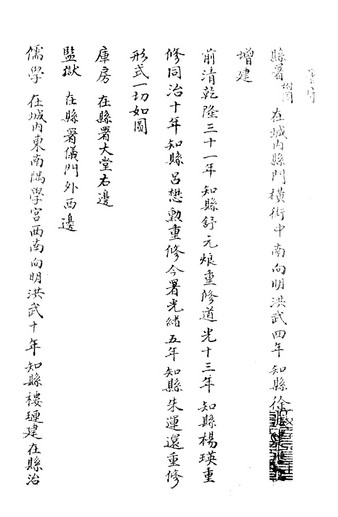 縣署 附圖 在城內縣門橫街中南向明洪武四年知縣徐
增建
前清乾隆三十一年知縣舒元烺重修道光十三年知縣楊瑛重
修同治十年知縣呂懋勳重修今署光緒五年知縣朱運還重修
形式一切如圖
庫房 在縣署大堂右邊
監獄 在縣署儀門外西邊
儒學 在城內東南隅學宮西南向明洪武十年知縣樓璉建在縣治